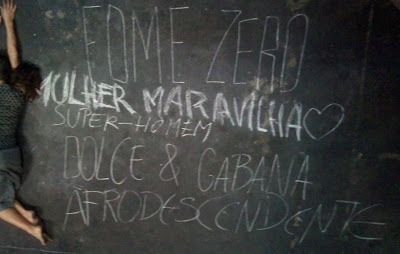 FOME ZERO
MULHER MARAVILHA
SUPER-HOMEM
DOLCE & GABANA
AFRODESCENDENTE